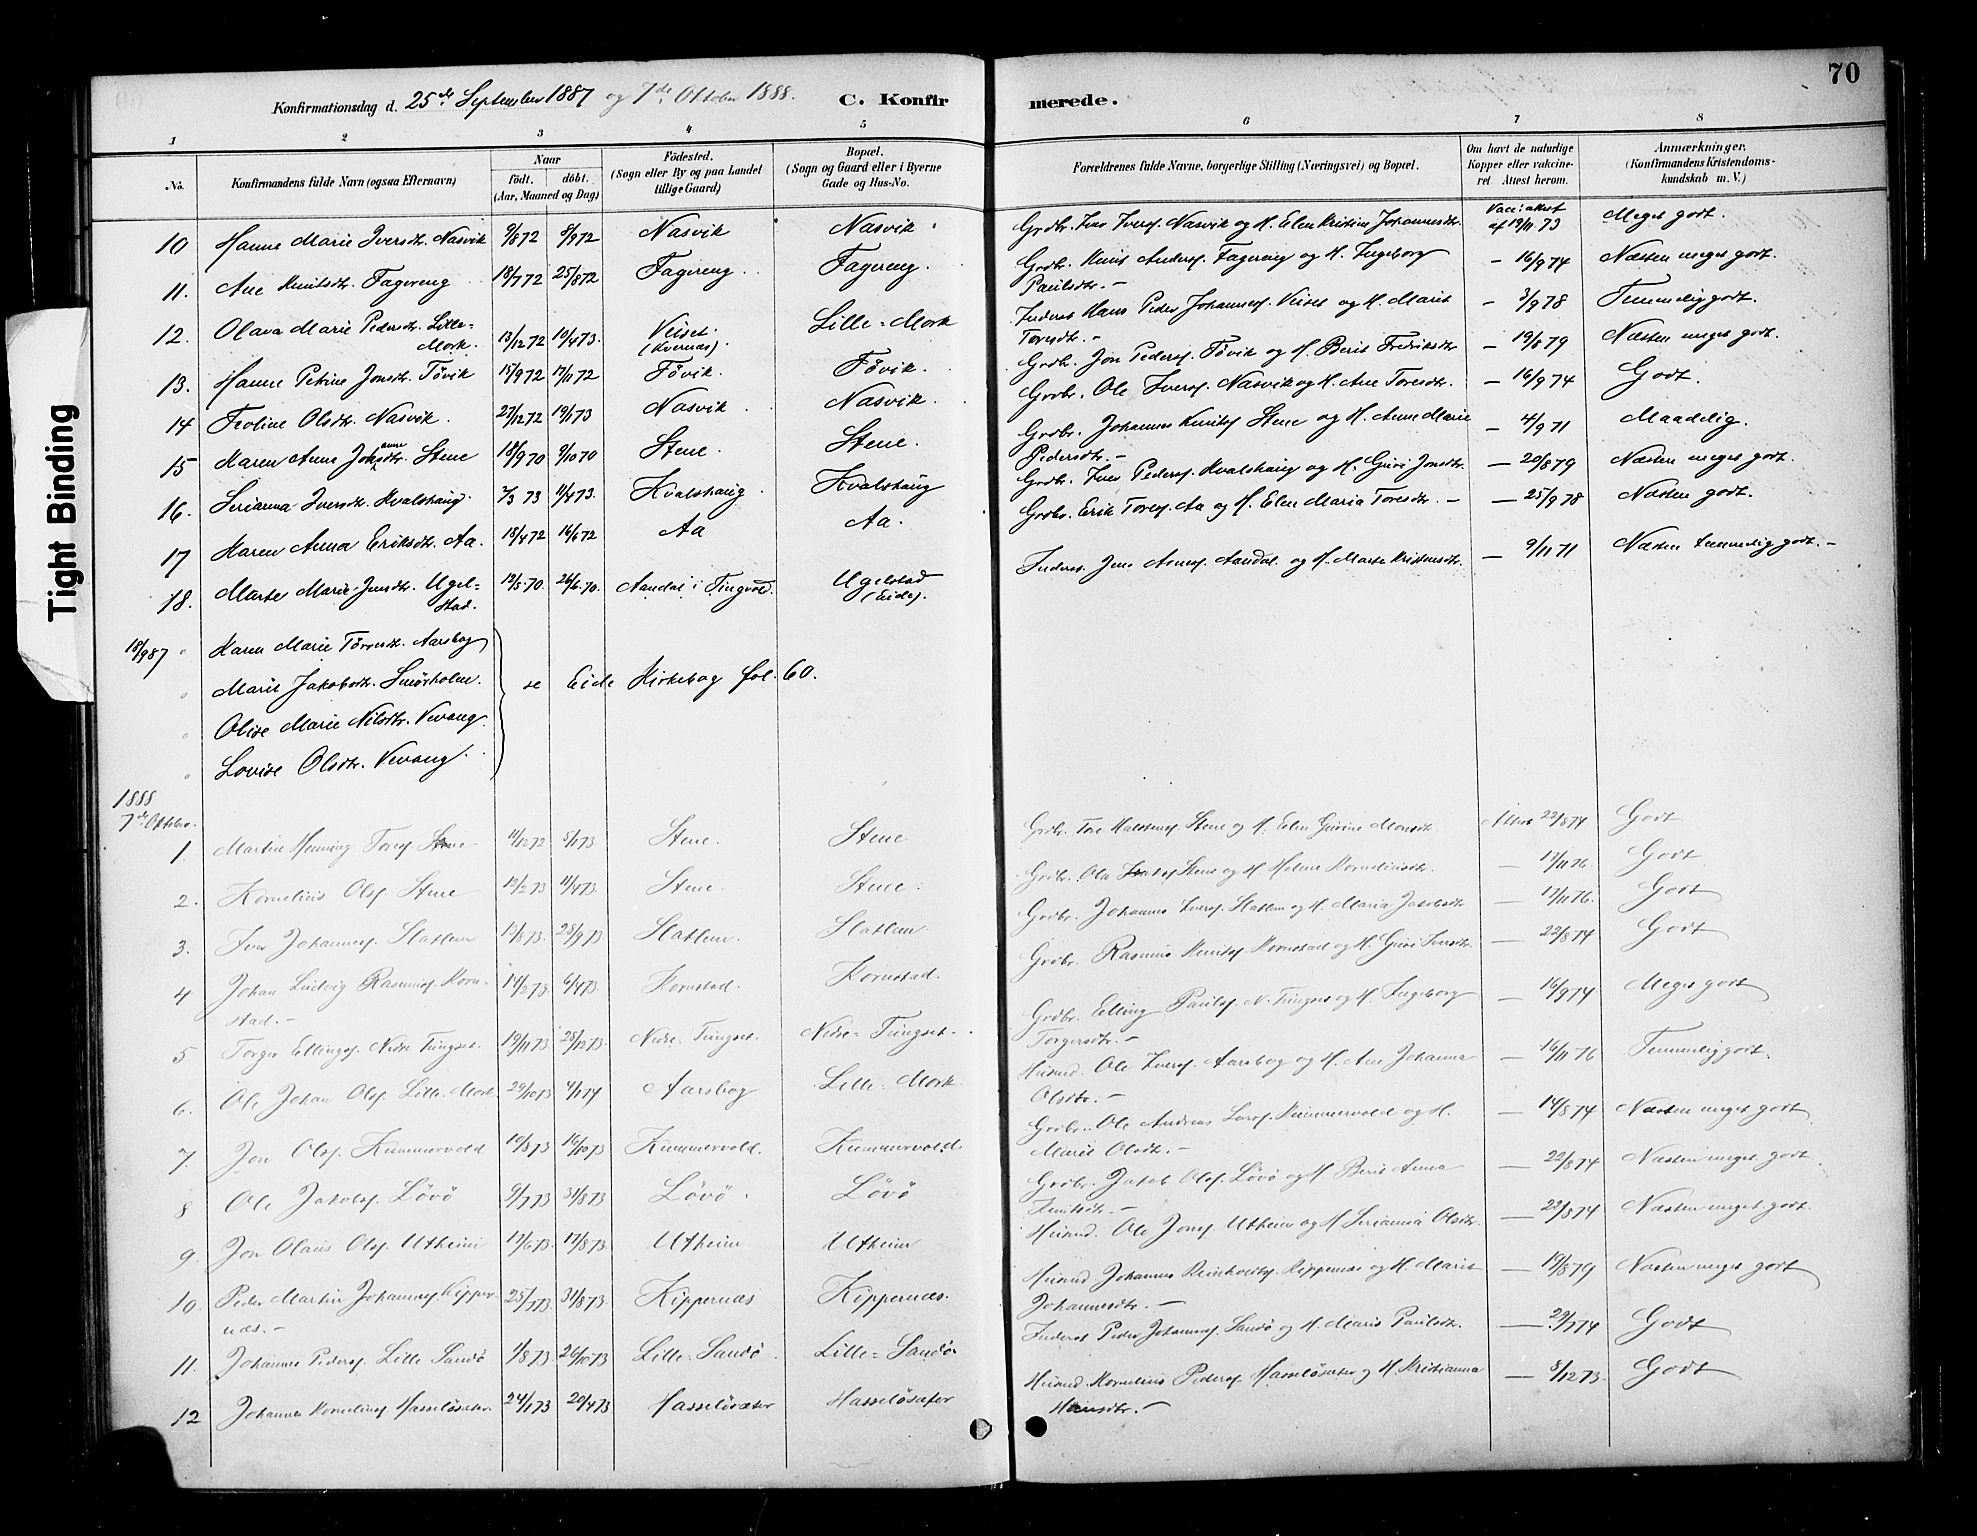 70
Konfirmationsdag d. 25de September 1887 og 7de Oktober 1888. C. Konfirmerede.
1 2 3 4 5 6 7 8
No. Konfirmandens fulde Navn (ogsaa Efternavn) Naar födt. döbt. (Aar, Maaned og Dag) Födested. (Sogn eller By og paa Landet tillige Gaard) Bopæl. (Sogn og Gaard eller i Byerne Gade og Hus-No.) Forældrenes fulde Navne, borgerlige Stilling (Næringsvei) og Bopæl. Om havt de naturlige Kopper eller vakcineret. Attest herom. Anmærkninger. (Konfirmandens Kristendomskundskab m. V.)
10 Hanne Marie Iversdtr. Nasvik 9/8 72 8/9 72 Nasvik Nasvik Grdbr. Iver Iversf. Nasvik og H. Elen Kristine Johannesdtr. Vacc: attest af 19/11 73 Meget godt.
11. Ane Knutsdtr. Fagereng 18/7 72 25/8 72 Fagereng. Fagereng. Grdbr. Knut Andersf. Fagereng og H. Ingeborg Paulsdtr. - - 16/9 74 Næsten meget godt.
12. Olava Marie Pedersdtr. Lille= Mork. 13/12 72 19/4 73. Veiset. (Kvernæs) Lille=Mork Inderst Hans Peder Johannesf. Veiset og H. Marit Toresdtr. - - 3/9 78 Temmelig godt.
13. Hanne Petrine Jonsdtr. Tövik 15/9 72 17/11 72 Tövik. Tövik. Grdbr. Jon Pedersf. Tövik og H. Berit Fredriksdtr - 19/6 79 Næsten meget godt.
14 Froline Olsdtr. Nasvik. 27/12 72 19/1 73 Nasvik Nasvik. Grdbr. Ole Iversf. Nasvik og H. Ane Toresdtr. - 16/9 74 Godt.
15 Karen Anne Johannesdtr. Stene 18/9 70 9/10 70 Stene. Stene. Grdbr. Johannes Knutsf. Stene og H. Anne Marie Pedersdtr. - - 4/9 71 Maadelig.
16. Serianna Iversdtr. Kvalshaug. 2/3 73 11/4 73. Kvalshaug. Kvalshaug Grdbr. Iver Pedersf. Kvalshaug og H. Guri Jonsdtr. - 20/8 79 Næsten meget godt.
17 Karen Anna Eriksdtr. Aa. 18/4 72 16/6 72 Aa Aa. Grdbr. Erik Toresf. Aa og H. Elen Maria Toresdtr. - - 25/9 78 Næsten godt.
18. Marte Marie Jensdtr. Ugel= stad. 12/5 70 26/6 70. Aandal i Tingvold. Ugelstad (Eide). Inderst Jens Arnesf. Aandal og H. Marte Kristensdtr. - 9/11 71 Næsten temmelig godt. -
18/9 87 Karen Marie Törresdtr. Aarsbog
Marit Jakobsdtr. Smörholm. } se Eide Kirkebog fol. 60.
Olise Marie Nilsdtr. Vevang.
Lovise Olsdtr. Vevang.
1888
7de Oktober.
1. Martin Henning Toresf. Stene 11/12 72 5/1 73 Stene. Stene Grdbr. Tore Halstensf. Stene og H. Elen Gurine Monsdtr. Attest 22/8 74 Godt
2. Kornelius Olsf. Stene 12/2 73 11/4 73. Stene. Stene. Grdbr. Ola Stene og H. Helene Korneliusdtr. - 17/11 76. Godt
3. Iver Johannesf. Statlem 13/8 73. 28/9 73 Statlem. Statlem. Grdbr. Johannes Iversf. Statlem og H. Maria Jakobsdtr - 17/11 76. Godt
4 Johan Ludvig Rasmusf. Korn= stad. - 14/2 73. 6/4 73. Kornstad. Kornstad. Grdbr. Rasmus Knutsf. Kornstad og H. Guri Iversdtr. - 22/8 74 Godt
5 Torger Ellingsf. Nedre Tungset. 19/11 73 28/12 73. Nedre-Tungset. Nedre-Tungset. Grdbr. Elling Paulsf. N. Tungset og H. Ingeborg Torgersdtr. - - 16/9 74 Meget godt
6. Ole Johan Olsf. Lille-Mork. 29/10 73 4/1 74 Aarsbog Lille-Mork. Husmd. Ole Iversf. Aarsbog og H. Ane Johanna Olsdtr. - - 16/11 76 Temmelig godt.
7. Jon Olsf. Kummervold 10/8 73 16/10 73 Kummervold. Kummervold. Grdbr. Ole Andreas Larsf. Kummervold og H. Marit Olsdtr. - - 14/8 74 Næsten meget godt
8 Ole Jakobsf. Lövö 9/7 73 31/8 73 Lövö. Lövö Grdbr. Jakob Olsf. Lövö og H. Berit Anna Knutsdtr. - - 22/8 74 Næsten meget godt
9. Jon Olaus Olsf. Utheim 17/6 73. 17/8 73. Utheim Utheim Husmd. Ole Jonsf. Utheim og H. Serianna Olsdtr. - 22/8 74 Næsten meget godt.
10. Peder Martin Johannesf. Kipper= næs. - 25/7 73. 31/8 73. Kippernæs Kippernæs. Husmd Johannes Reinholdtsf. Kippernæs og H. Marit Johannesdtr. - - 19/8 79 Næsten meget godt
11. Johannes Pedersf. Lille Sandö 1/8 73. 26/10 73 Lille-Sandö. Lille=Sandö. Inderst Peder Johannesf. Sandö og H. Marit Paulsdtr. - 29/7 74 Godt
12 Johannes Korneliusf. Hasselösæter. 24/1 73 20/4 73 Hasselösæter Hasselösæter Husmd. Kornelius Pedersf. Hasselösæter og H. Kristianna Hansdtr. - - 8/12 73. Godt
Tight Binding